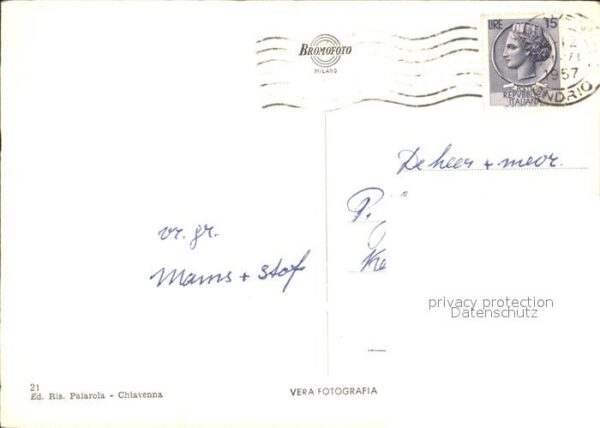 BROMOFOTO
MILANO
LIRE 15
REPVBBLICA
ITALIANA
1957
SONDRIO
De heer + mevr.
P.
vr. gr.
Mams + Stof
privacy protection
Datenschutz
21
Ed. Ris. Paiarola - Chiavenna
VERA FOTOGRAFIA